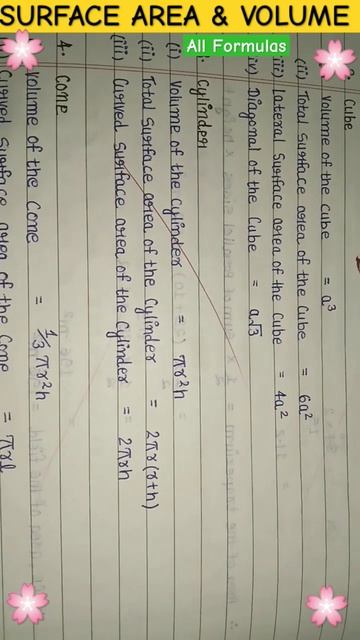 SURFACE AREA & VOLUME
All Formulas
Cube
Volume of the Cube = a³
(ii) Total Surface area of the Cube = 6a²
(iii) Lateral Surface area of the Cube = 4a²
(iv) Diagonal of the Cube = a√3
Cylinder
(i) Volume of the Cylinder = πr²h
(ii) Total Surface area of the Cylinder = 2πr(r+h)
(iii) Curved Surface area of the Cylinder = 2πrh
4. Cone
Volume of the Cone = 1/3 πr²h
Curved Surface area of the Cone = πrl